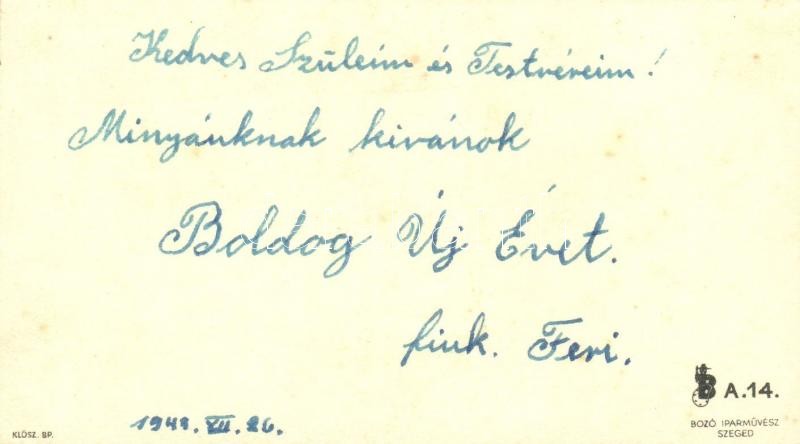 Kedves Szüleim és Testvéreim!
Minyájuknak kivánok
Boldog Új Évet.
fiuk. Feri.
XII. 26.
KLÖSZ. BP.
B A.14.
BOZÓ IPARMŰVÉSZ
SZEGED